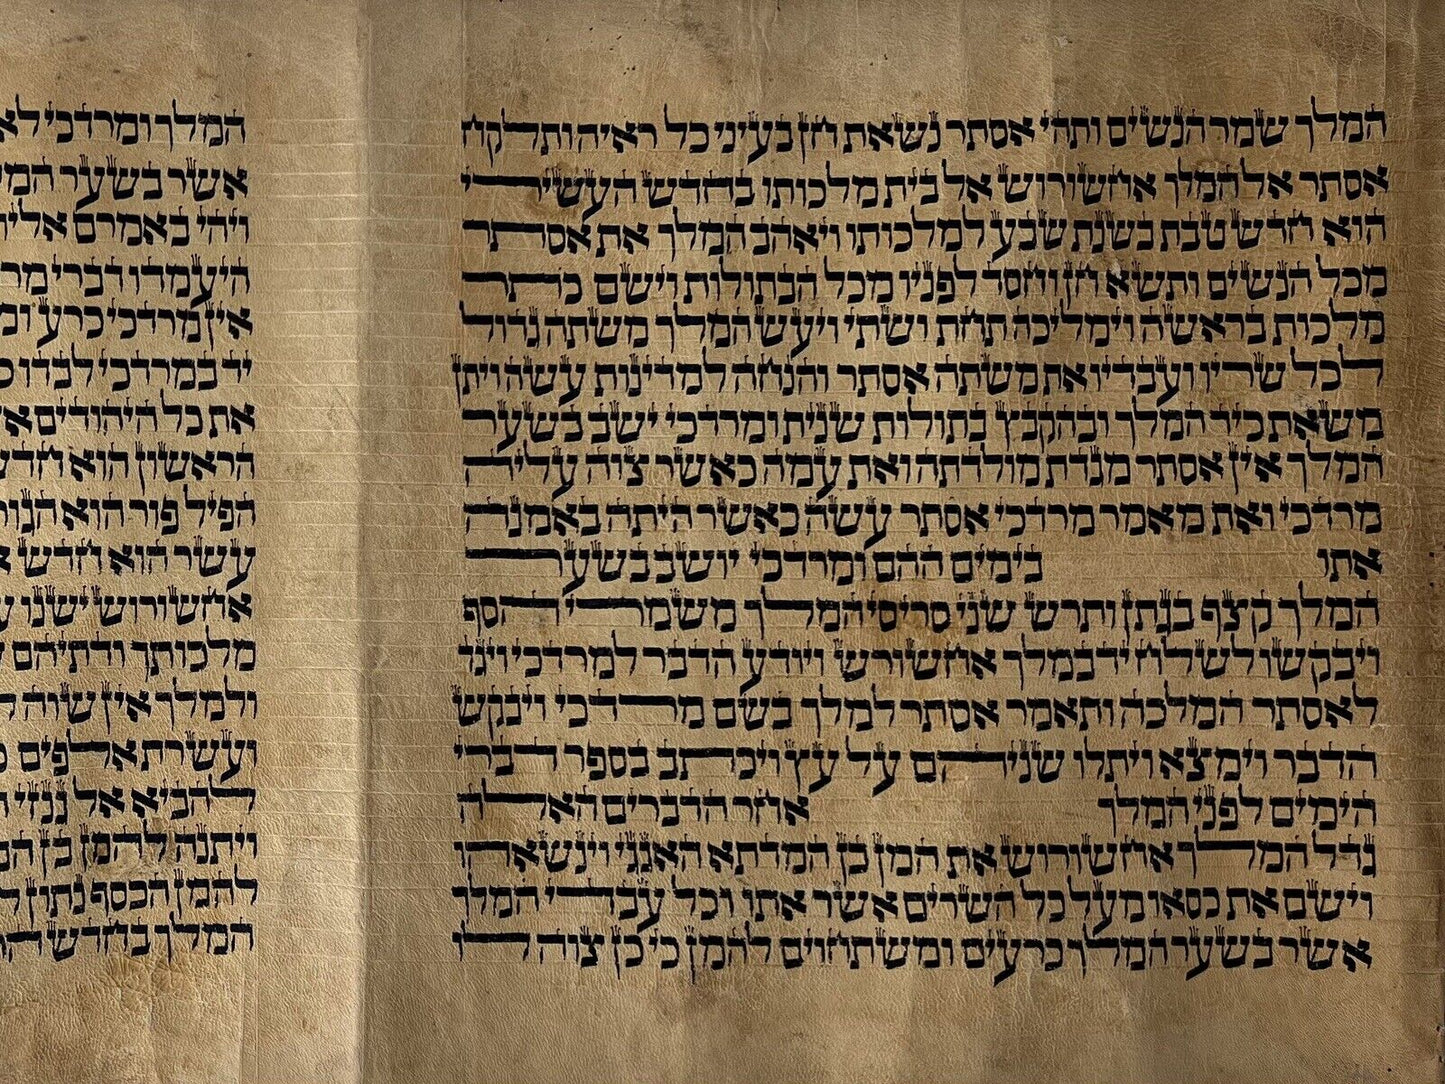 המלך שמר הנשים ותהי אסתר נשאת חן בעיני כל ראיה ותלקח
אסתר אל המלך אחשורוש אל בית מלכותו בחדש העשירי
הוא חדש טבת בשנת שבע למלכותו ויאהב המלך את אסתר
מכל הנשים ותשא חן וחסד לפניו מכל הבתולות וישם כתר
מלכות בראשה וימליכה תחת ושתי ויעש המלך משתה גדול
לכל שריו ועבדיו את משתה אסתר והנחה למדינות עשה ויתן
משאת כיד המלך ובהקבץ בתולות שנית ומרדכי ישב בשער
המלך אין אסתר מגדת מולדתה ואת עמה כאשר צוה עליה
מרדכי ואת מאמר מרדכי אסתר עשה כאשר היתה באמנה
אתו בימים ההם ומרדכי יושב בשער
המלך קצף בגתן ותרש שני סריסי המלך משמרי הסף
ויבקשו לשלח יד במלך אחשורש ויודע הדבר למרדכי ויגד
לאסתר המלכה ותאמר אסתר למלך בשם מרדכי ויבקש
הדבר וימצא ויתלו שניהם על עץ ויכתב בספר דברי
הימים לפני המלך אחר הדברים האלה
גדל המלך אחשורוש את המן בן המדתא האגגי וינשאהו
וישם את כסאו מעל כל השרים אשר אתו וכל עבדי המלך
אשר בשער המלך כרעים ומשתחוים להמן כי כן צוה לו
המלך ומרדכי לא
אשר בשער
ויהי באמרם
היעמדו דברי
אין מרדכי כרע
יד במרדכי לבדו
את כל היהודים
הראשון הוא
הפיל פור הוא
עשר הוא חדש
אחשורוש ישנו
מלכותך ודתיהם
ולמלך אין שוה
ועשרת אלפים
להביא אל גנזי
ויתנה להמן בן
להמן הכסף נתון
המלך בחדש